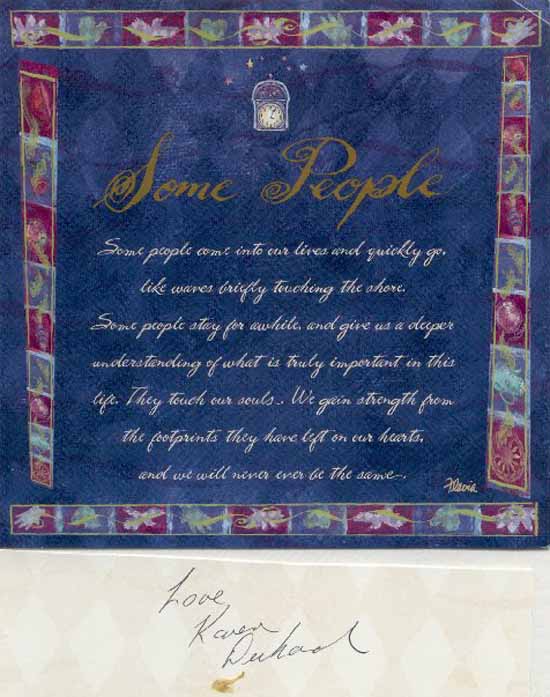 Some People
Some people come into our lives and quickly go,
like waves briefly touching the shore.
Some people stay for awhile, and give us a deeper
understanding of what is truly important in this
life. They touch our souls.. We gain strength from
the footprints they have left on our hearts,
and we will never ever be the same..
Flavia
Love,
Karen